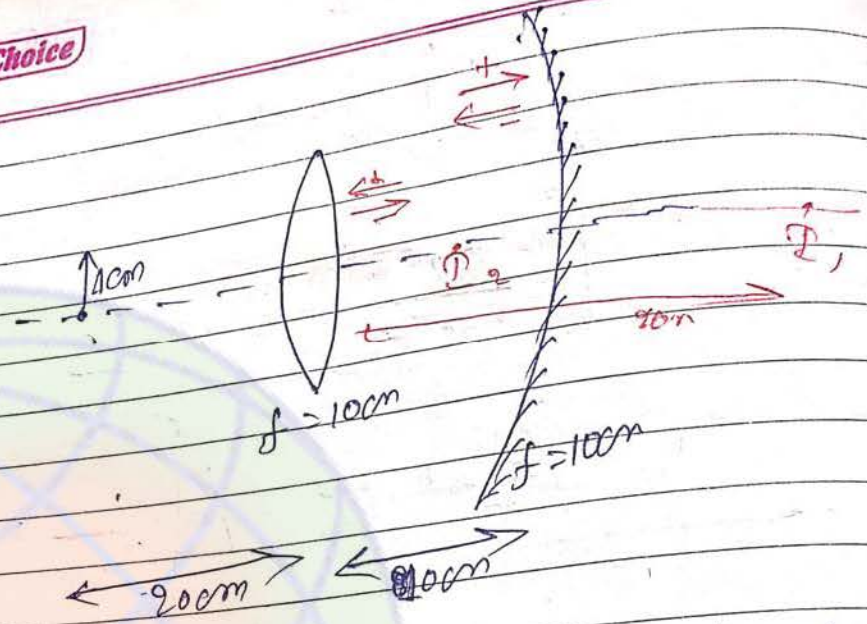 Choice
+
-
1cm
+
I2
I1
20cm
f = 10cm
f = 10cm
20cm
10cm